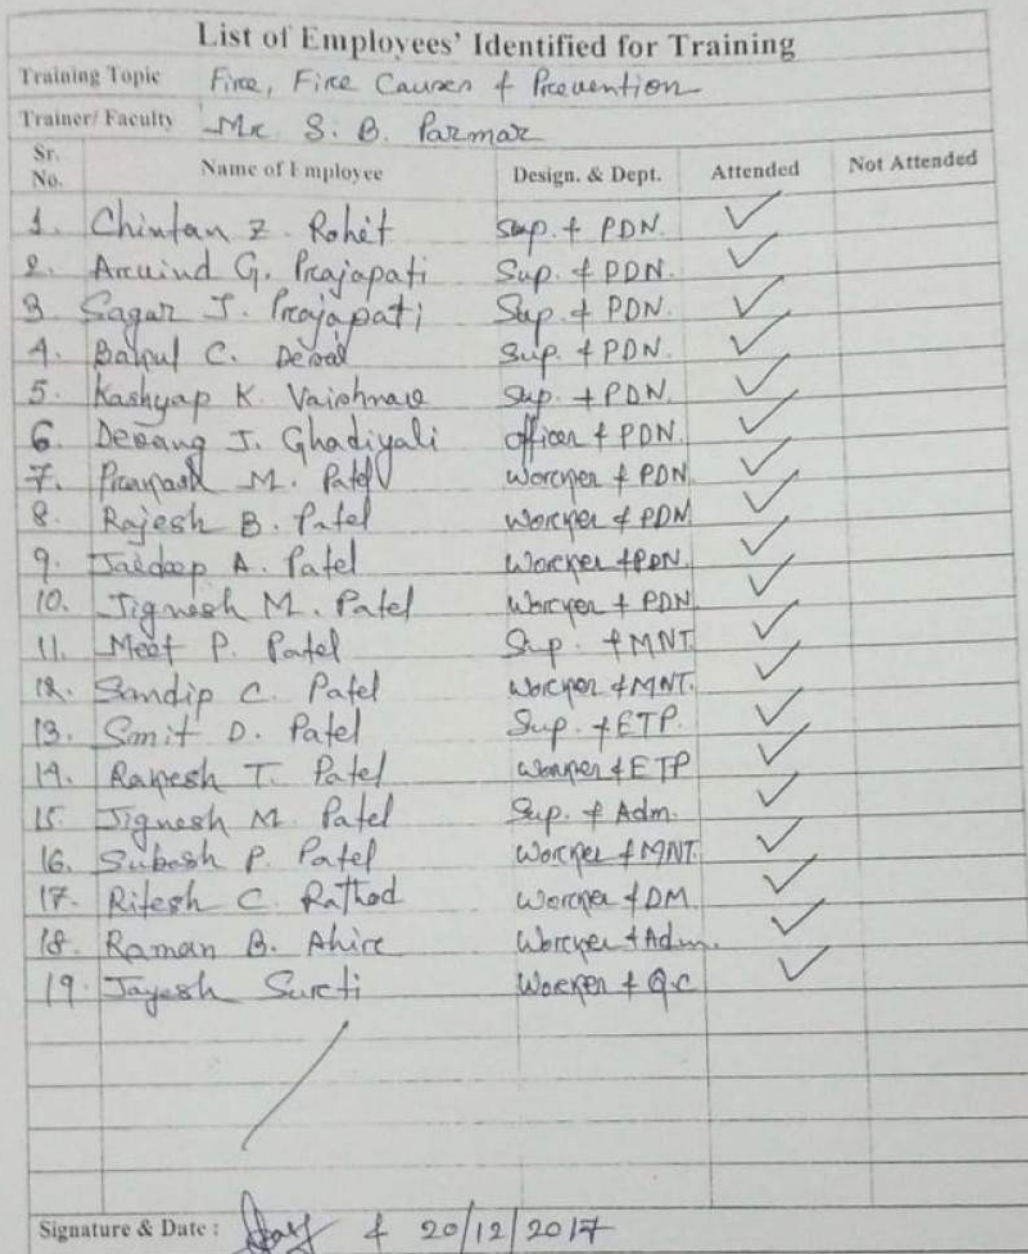 List of Employees' Identified for Training
Training Topic Fire, Fire Causes & Prevention
Trainer/ Faculty Mr S. B. Parmar
Sr. No. Name of Employee Design. & Dept. Attended Not Attended
1. Chintan Z. Rohit Sup. & PDN. ✓
2. Arvind G. Prajapati Sup. & PDN. ✓
3. Sagar J. Prajapati Sup. & PDN. ✓
4. C. Sup. & PDN. ✓
5. Kashyap K. Vaishnav Sup. & PDN. ✓
6. Devang J. Ghadiyali Officer & PDN. ✓
7. M. Patel Worker & PDN. ✓
8. Rajesh B. Patel Worker & PDN ✓
9. Jaideep A. Patel Worker & PDN. ✓
10. Jignesh M. Patel Worker & PDN ✓
11. Meet P. Patel Sup. & MNT. ✓
12. Sandip C. Patel Worker & MNT. ✓
13. Smit D. Patel Sup. & ETP. ✓
14. Rakesh T. Patel Worker & ETP ✓
15. Jignesh M. Patel Sup. & Adm. ✓
16. Subash P. Patel Worker & MNT. ✓
17. Ritesh C. Rathod Worker & DM. ✓
18. Raman B. Ahire Worker & Adm. ✓
19. Jayesh Surti Worker & Q.C ✓
Signature & Date : & 20/12/2017